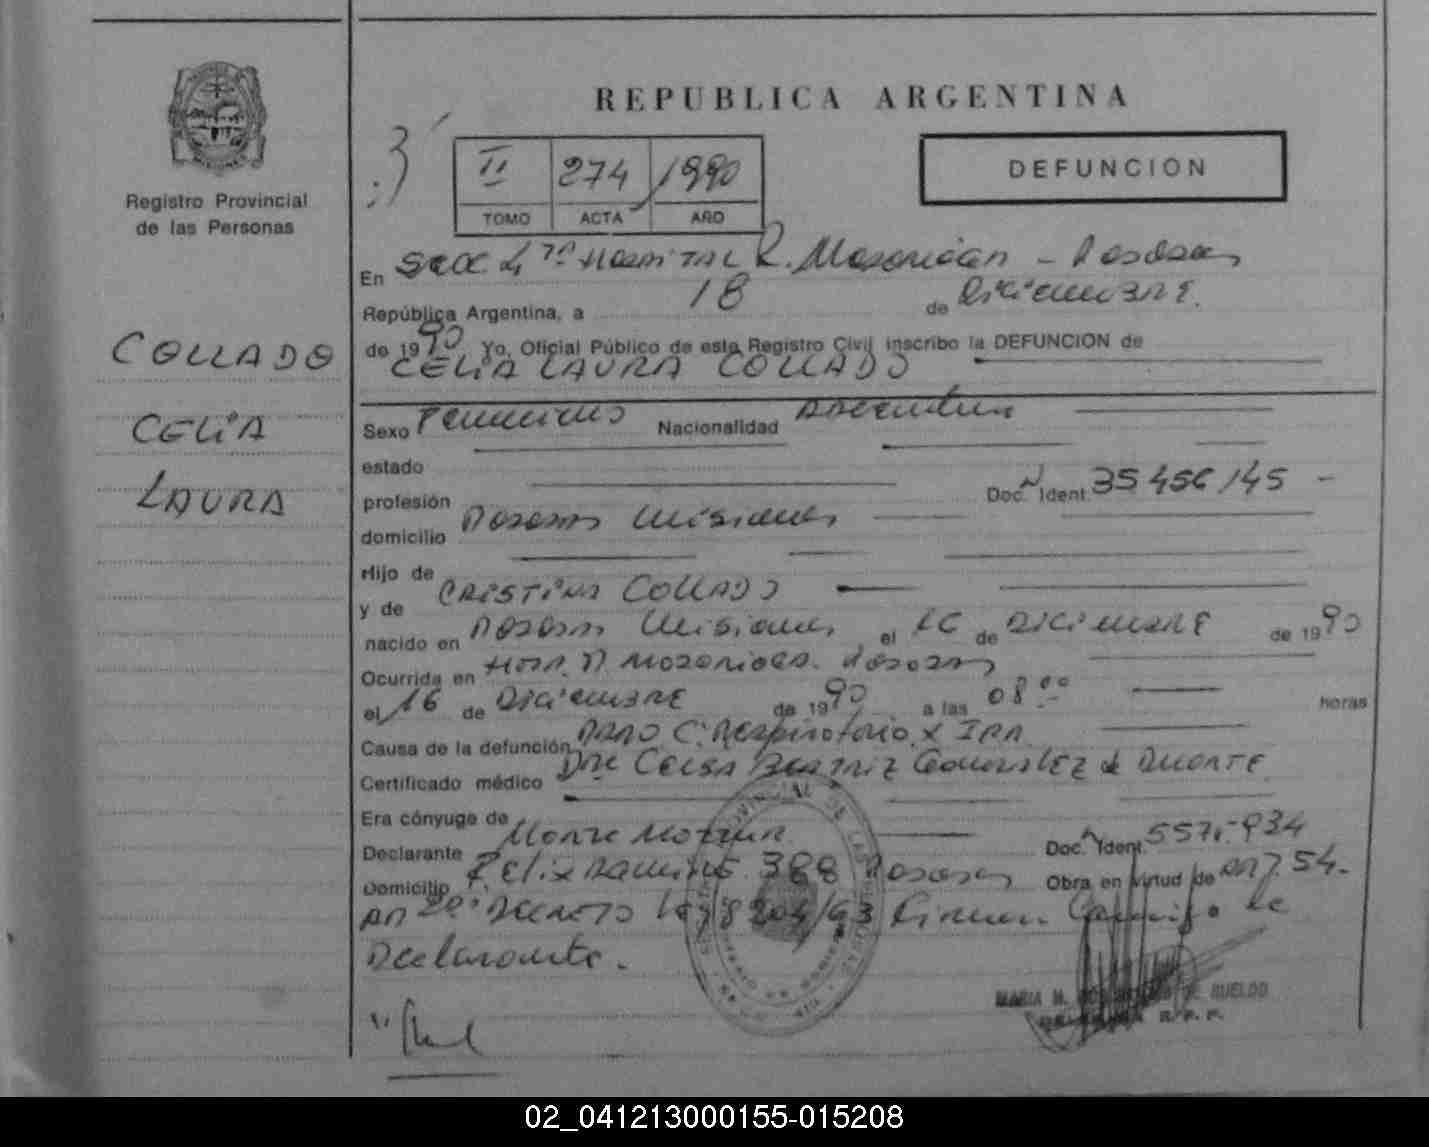 REPUBLICA ARGENTINA
DEFUNCION
II 274 1990
TOMO ACTA AÑO
Registro Provincial
de las Personas
COLLADO
CELIA
LAURA
En Secc 4ta Hospital R. Madariaga - Posadas
República Argentina, a 18 de Diciembre
de 1990 Yo, Oficial Público de este Registro Civil inscribo la DEFUNCION de
CELIA LAURA COLLADO
Sexo Femenino Nacionalidad Argentina
estado
profesión Doc. Ident. 35456145 -
domicilio Posadas Misiones
Hijo de
y de CRISTINA COLLADO
nacido en Posadas Misiones el 16 de DICIEMBRE de 1990
Ocurrida en Hosp. R. Madariaga. Posadas
el 16 de Diciembre de 1990 a las 08 00 horas
Causa de la defunción Paro C. Respiratorio x IRA
Certificado médico Dra Celsa Beatriz Gonzalez d Duarte
Era cónyuge de
Declarante Doc. Ident.
Domicilio Felix 388 Posadas Obra en virtud de 54.
Decreto Ley 8204/63 Firman Conmigo
Declarante.
MARIA M. DE SUELDO
R. P. P.
02_041213000155-015208